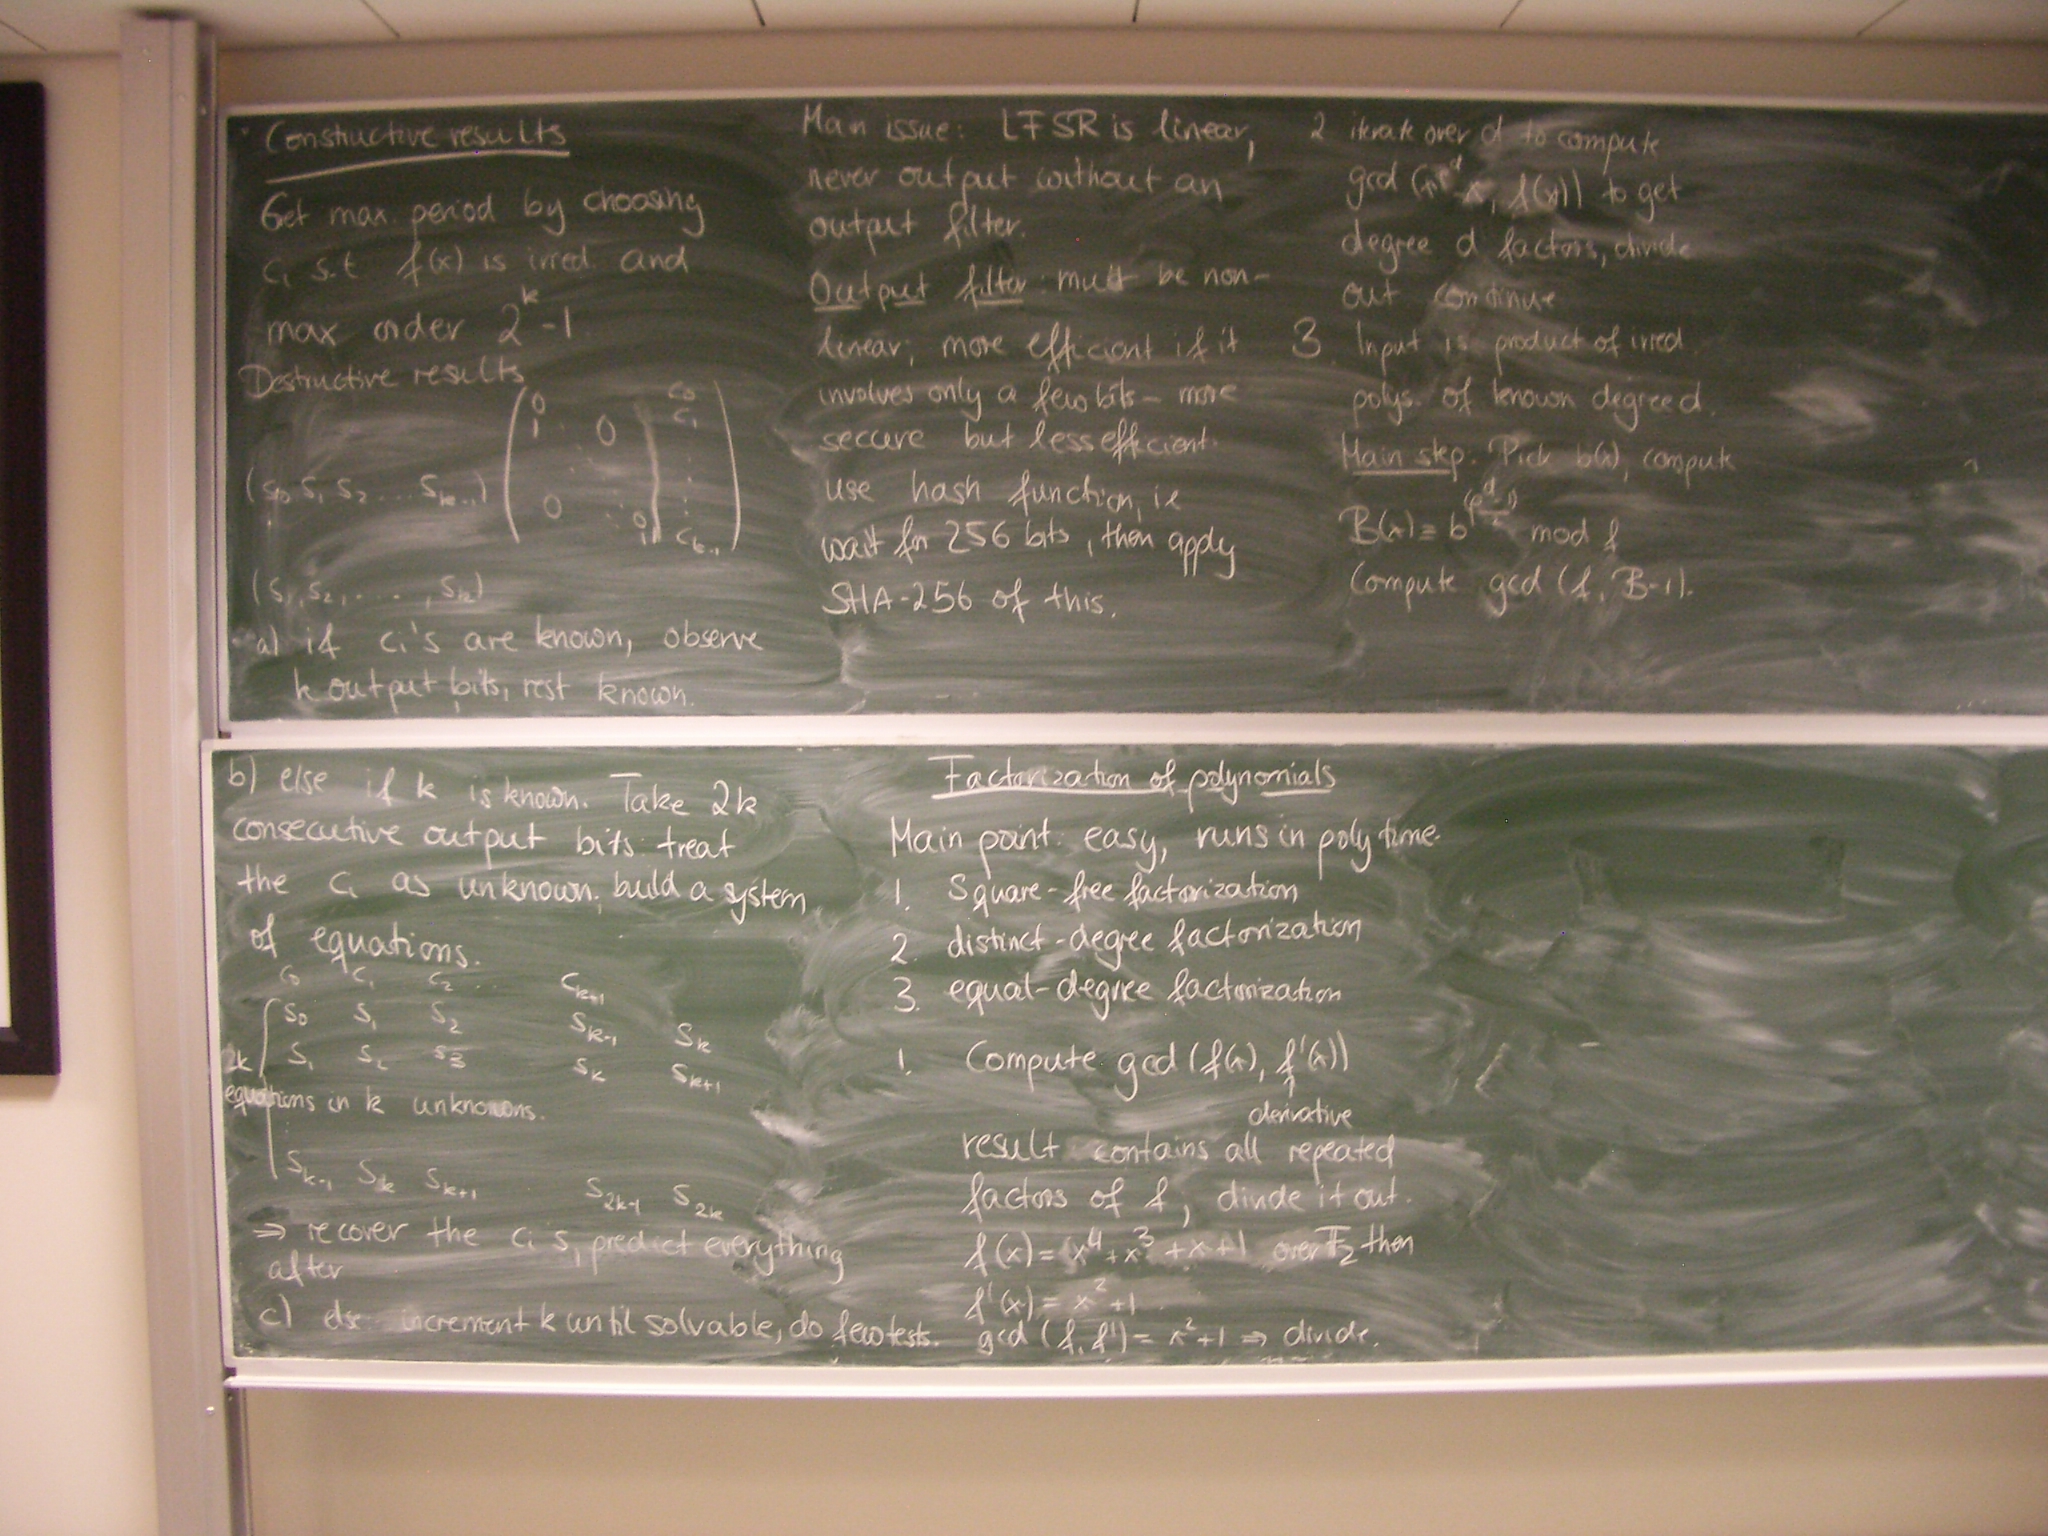 Constructive results
Get max. period by choosing
ci s.t f(x) is irred and
max order 2^k-1
Destructive results
0 c0
1 0 c1
(s0 s1 s2 ... sk-1)
0 0
1 ck-1
(s1, s2, ..., sk)
a) if ci's are known, observe
k output bits, rest known.
Main issue: LFSR is linear,
never output without an
output filter.
Output filter must be non-
linear; more efficient if it
involves only a few bits - more
secure but less efficient.
use hash function, ie
wait for 256 bits, then apply
SHA-256 of this.
2 iterate over d to compute
gcd (x^p^d - x, f(x)) to get
degree d factors, divide
out continue
3. Input is product of irred.
polys. of known degree d.
Main step: Pick b(x), compute
B(x) ≡ b^((p^d-1)/2) mod f
Compute gcd (f, B-1).
b) else if k is known. Take 2k
consecutive output bits: treat
the ci as unknown, build a system
of equations.
c0 c1 c2 ... ck+1
s0 s1 s2 sk-1 sk
2k s1 s2 s3 sk sk+1
equations in k unknowns.
sk-1 sk sk+1 s2k-1 s2k
⇒ recover the ci s, predict everything
after
c) else increment k until solvable, do few tests.
Factorization of polynomials
Main point: easy, runs in poly time.
1. Square-free factorization
2. distinct-degree factorization
3. equal-degree factorization
1. Compute gcd (f(x), f'(x))
↑
derivative
result contains all repeated
factors of f, divide it out.
f(x) = x^4 + x^3 + x + 1 over F2 then
f'(x) = x^2 + 1
gcd (f, f') = x^2 + 1 ⇒ divide.